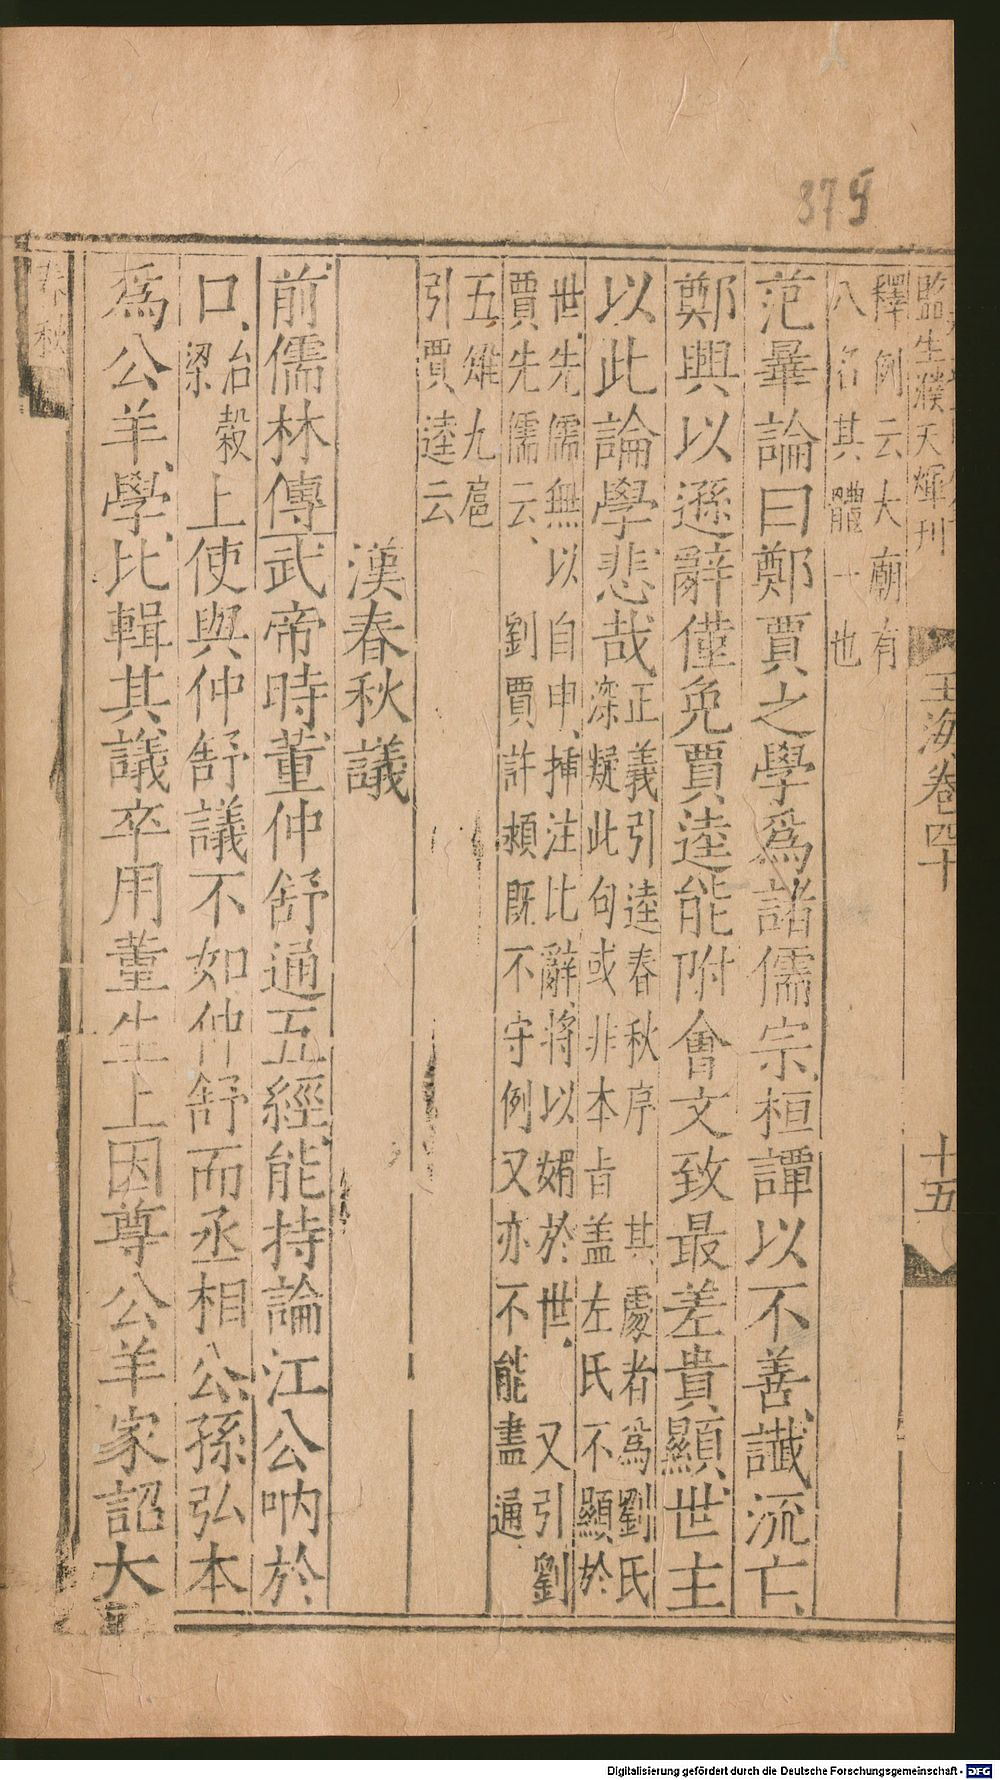 375
監生濮天煇刊
玉海卷四十
十五
釋例云大廟有
八名其體一也
范曄論曰鄭賈之學爲諸儒宗桓譚以不善讖流亡
鄭興以遜辭僅免賈逵能附會文致最差貴顯世主
以此論學悲哉
正義引逵春秋序 其處者爲劉氏
深疑此句或非本旨盖左氏不顯於
世先儒無以自申揷注比辭將以媚於世 又引劉
賈先儒云 劉賈許頴既不守例又亦不能盡通
五雉九扈
引賈逵云
漢春秋議
前儒林傳武帝時董仲舒通五經能持論江公吶於
口
治穀
梁
上使與仲舒議不如仲舒而丞相公孫弘本
爲公羊學比輯其議卒用董生上因尊公羊家詔大
春秋
Digitalisierung gefördert durch die Deutsche Forschungsgemeinschaft - DFG